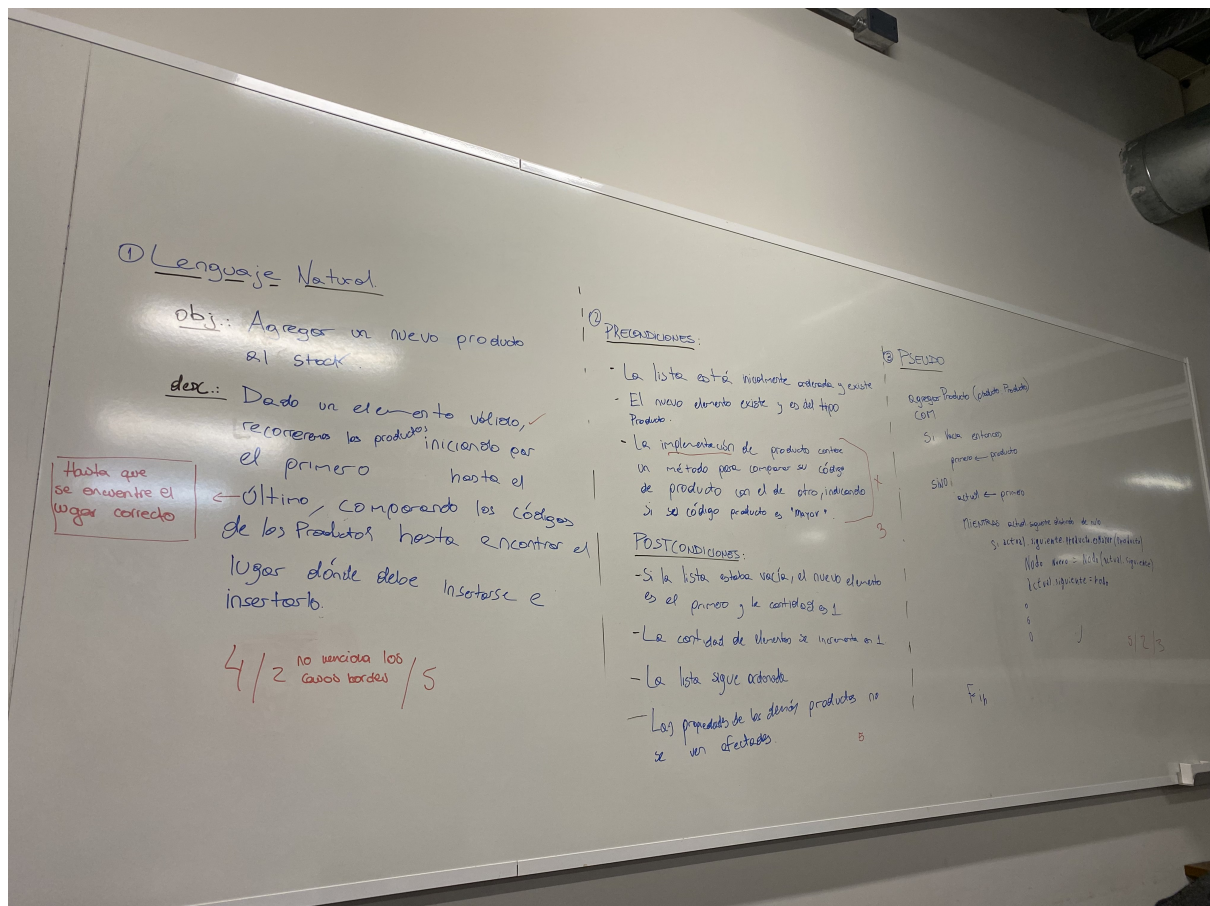 ① Lenguaje Natural.
obj.: Agregar un nuevo producto
al stock.
desc.: Dado un elemento válido,
recorreremos los productos iniciando por
el primero hasta el
último, comparando los códigos
de los Productos hasta encontrar el
lugar dónde debe insertarse e
insertarlo.
Hasta que
se encuentre el
lugar correcto
4/2 no menciona los
casos bordes /5
② PRECONDICIONES:
- La lista está inicialmente ordenada y existe
- El nuevo elemento existe y es del tipo
Producto.
- La implementación de producto contiene
un método para comparar su código
de producto con el de otro, indicando
si su código producto es "mayor".
3
POSTCONDICIONES:
- Si la lista estaba vacía, el nuevo elemento
es el primero y la cantidad es 1
- La cantidad de elementos se incrementa en 1
- La lista sigue ordenada
- Las propiedades de los demás productos no
se ven afectadas.
5
③ PSEUDO
agregarProducto (producto: Producto)
COM
Si vacia entonces
primero ← producto
SINO:
actual ← primero
MIENTRAS actual.siguiente distinto de nulo
Si actual.siguiente.producto (producto)
Nodo nuevo = Nodo (actual.siguiente)
Actual.siguiente = nodo
o
o
o
Fin